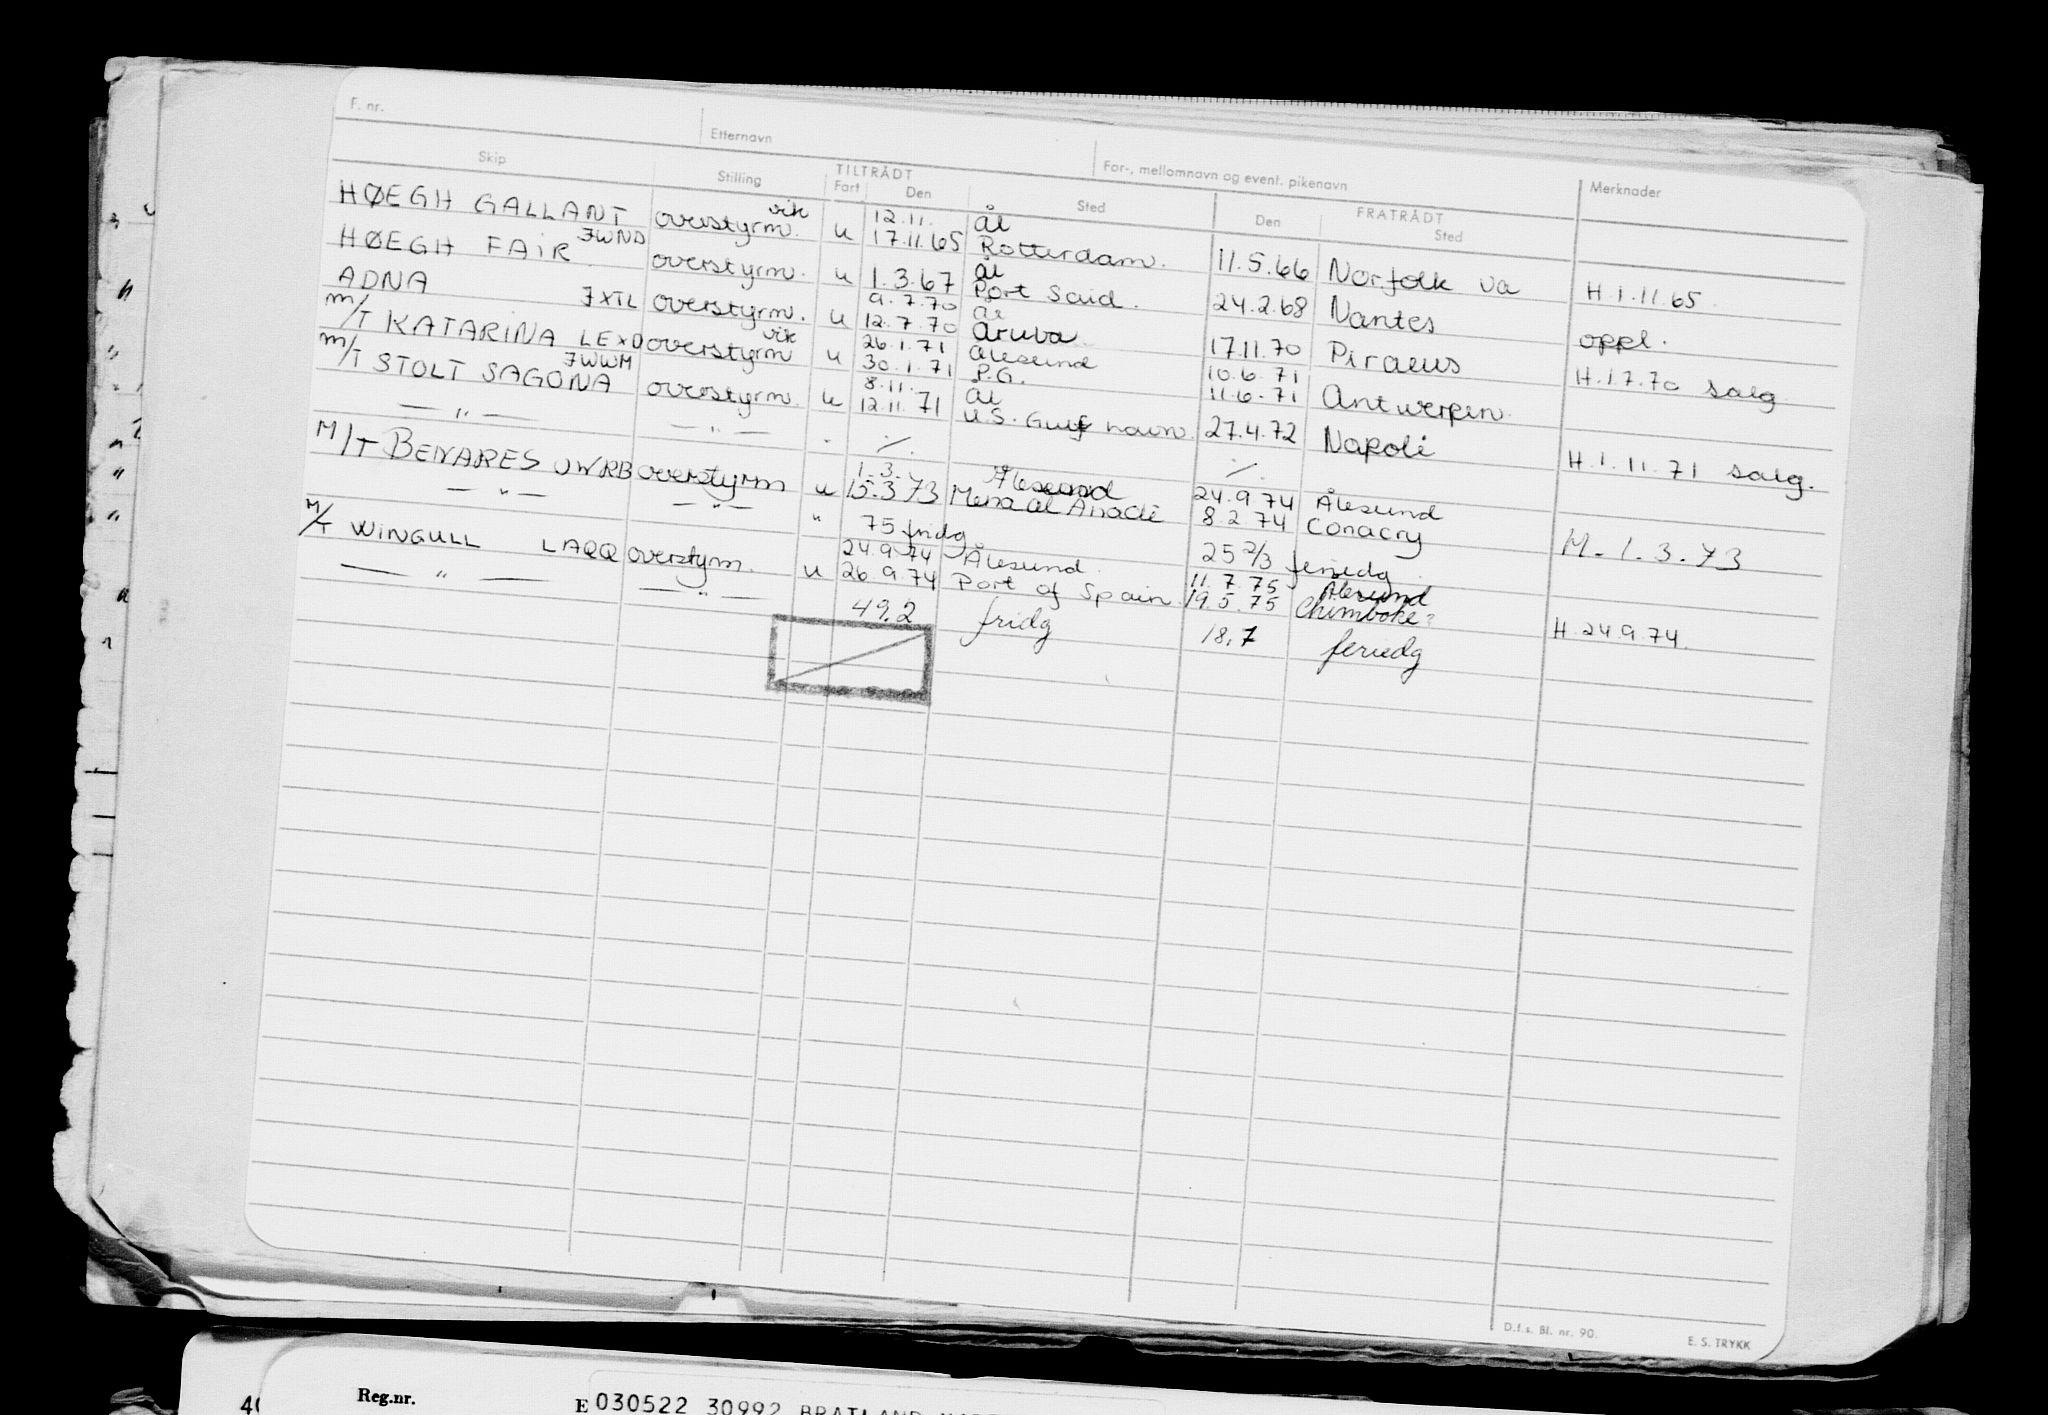 F. nr. Etternavn For-, mellomnavn og event. pikenavn
Skip Stilling TILTRÅDT Fart Den Sted FRATRÅDT Den Sted Merknader
HØEGH GALLANT overstyrm. vik u 12.11. 17.11.65 Ål Rotterdam. 11.5.66 Norfolk va H.1.11.65.
HØEGH FAIR JWND overstyrm. u 1.3.67 Ål Port Said. 24.2.68 Nantes oppl.
ADNA JXTL overstyrm. u 9.7.70 12.7.70 Ål Aruba. 17.11.70 Piraeus H.1.7.70 salg
M/T KATARINA LEXD overstyrm vik u 26.1.71 30.1.71 Ålesund P.G. 10.6.71 11.6.71 Antwerpen.
M/T STOLT SAGONA JWWM overstyrm. u 8.11. 12.11.71 Ål U.S. Gulf havn. 27.4.72 Napoli H.1.11.71 salg.
— " — — " — . ./. ./.
M/T BENARES JWRB overstyrm u 1.3. 15.3.73 Ålesund Mena al 24.9.74 8.2.74 Ålesund Conacry M.1.3.73
— " — — " — " 75 fridg 25 2/3 feriedg
M/T WINGULL LAQQ overstyrm. u 24.9.74 26.9.74 Ålesund. Port of Spain. 11.7.75 19.5.75 Ålesund Chimbote? H.24.9.74.
— " — — " — 49,2 fridg 18,7 feriedg
D.f.s. Bl. nr. 90. E. S. TRYKK
Reg.nr. E 030522 30992 BRATLAND